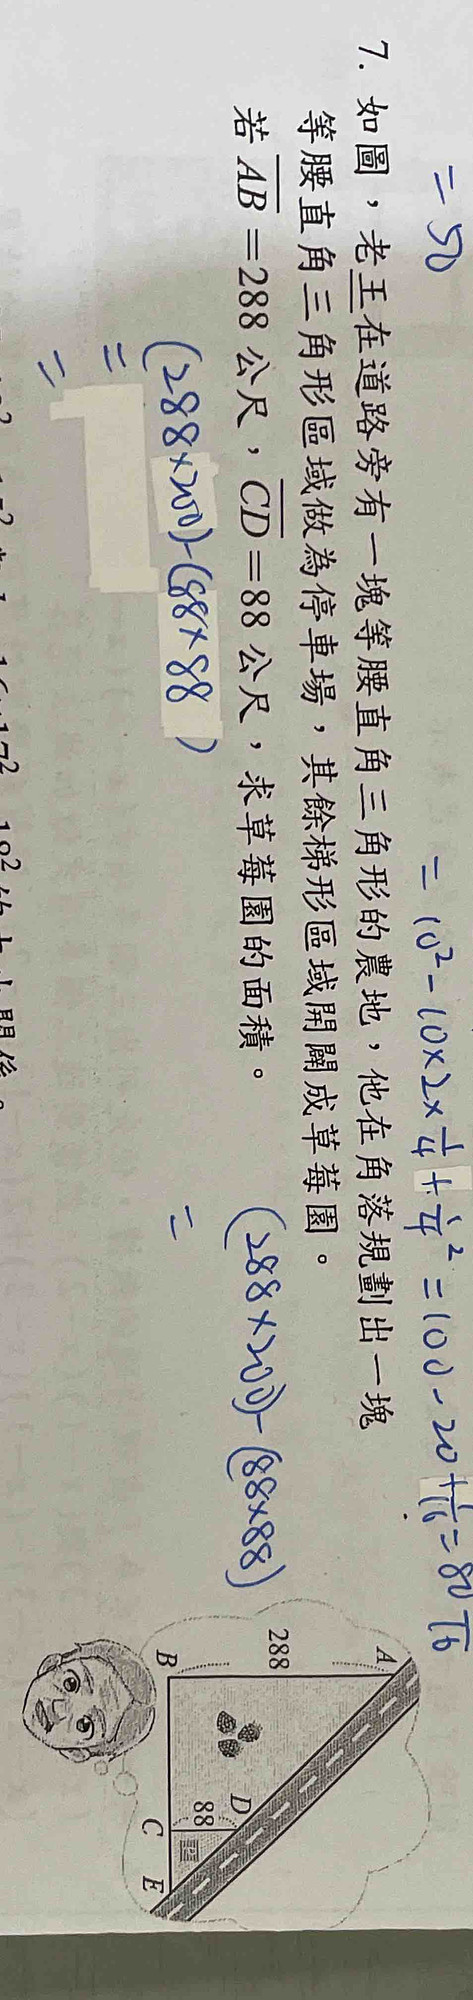 = 50
= 10² - 10×2×1/4 + 1/4² = 100 - 20 + 1/16 = 80 1/16
7. 如圖，老王在道路旁有一塊等腰直角三角形的農地，他在角落規劃出一塊
等腰直角三角形區域做為停車場，其餘梯形區域開闢成草莓園。
若AB=288公尺，CD=88公尺，求草莓園的面積。
(288×200)-(88×88)
=
=
(288×200)-(88×88)
=
A
288
B
D
88
C
E